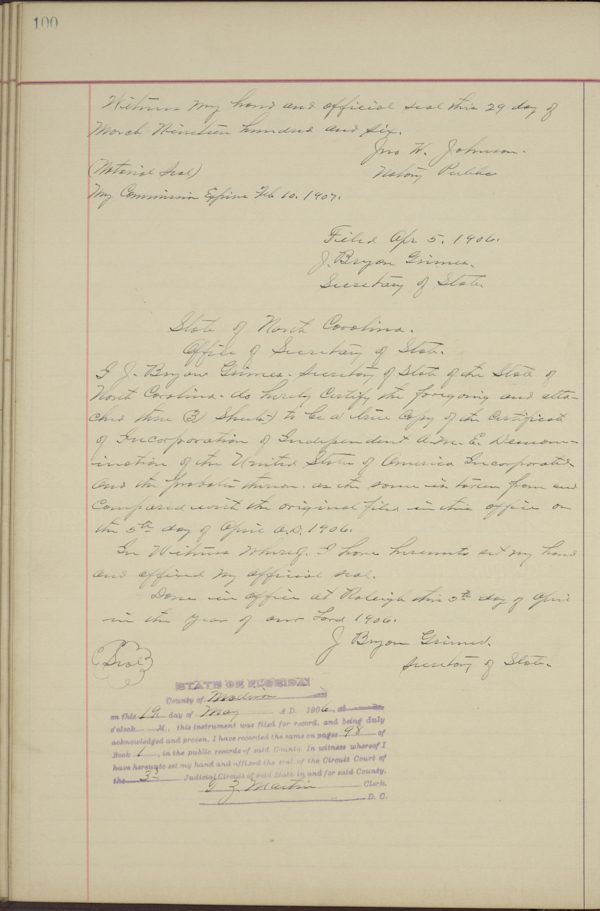 100
Witness my hand and official seal this 29 day of
March Nineteen hundred and six.
Jno W. Johnson.
Notary Public
(Notarial Seal)
My Commission Expires Feb 10. 1907.
Filed Apr 5. 1906.
J. Bryan Grimes.
Secretary of State.
State of North Carolina.
Office of Secretary of State.
I J. Bryan Grimes. Secretary of State of the State of
North Carolina. do hereby Certify the foregoing and atta-
ched three (3) Sheets to be a true Copy of the Certificate
of Incorporation of Independent A.M.E. Denom-
ination of the United States of America Incorporated
and the probate thereon. as the same is taken from and
Compared with the original filed in this office on
the 5th day of April A.D. 1906.
In Witness Whereof. I have hereunto set my hand
and affixed my official seal.
Done in office at Raleigh this 5th day of April
in the year of our Lord 1906.
J Bryan Grimes.
Secretary of State.
Seal
STATE OF FLORIDA
County of Madison
on this 19 day of May A.D. 1906, at
o'clock M., this instrument was filed for record, and being duly
acknowledged and proven, I have recorded the same on pages 98 of
Book 1, in the public records of said County. In witness whereof I
have hereunto set my hand and affixed the seal of the Circuit Court of
the 3d Judicial Circuit of said State in and for said County.
Martin Clerk.
D. C.